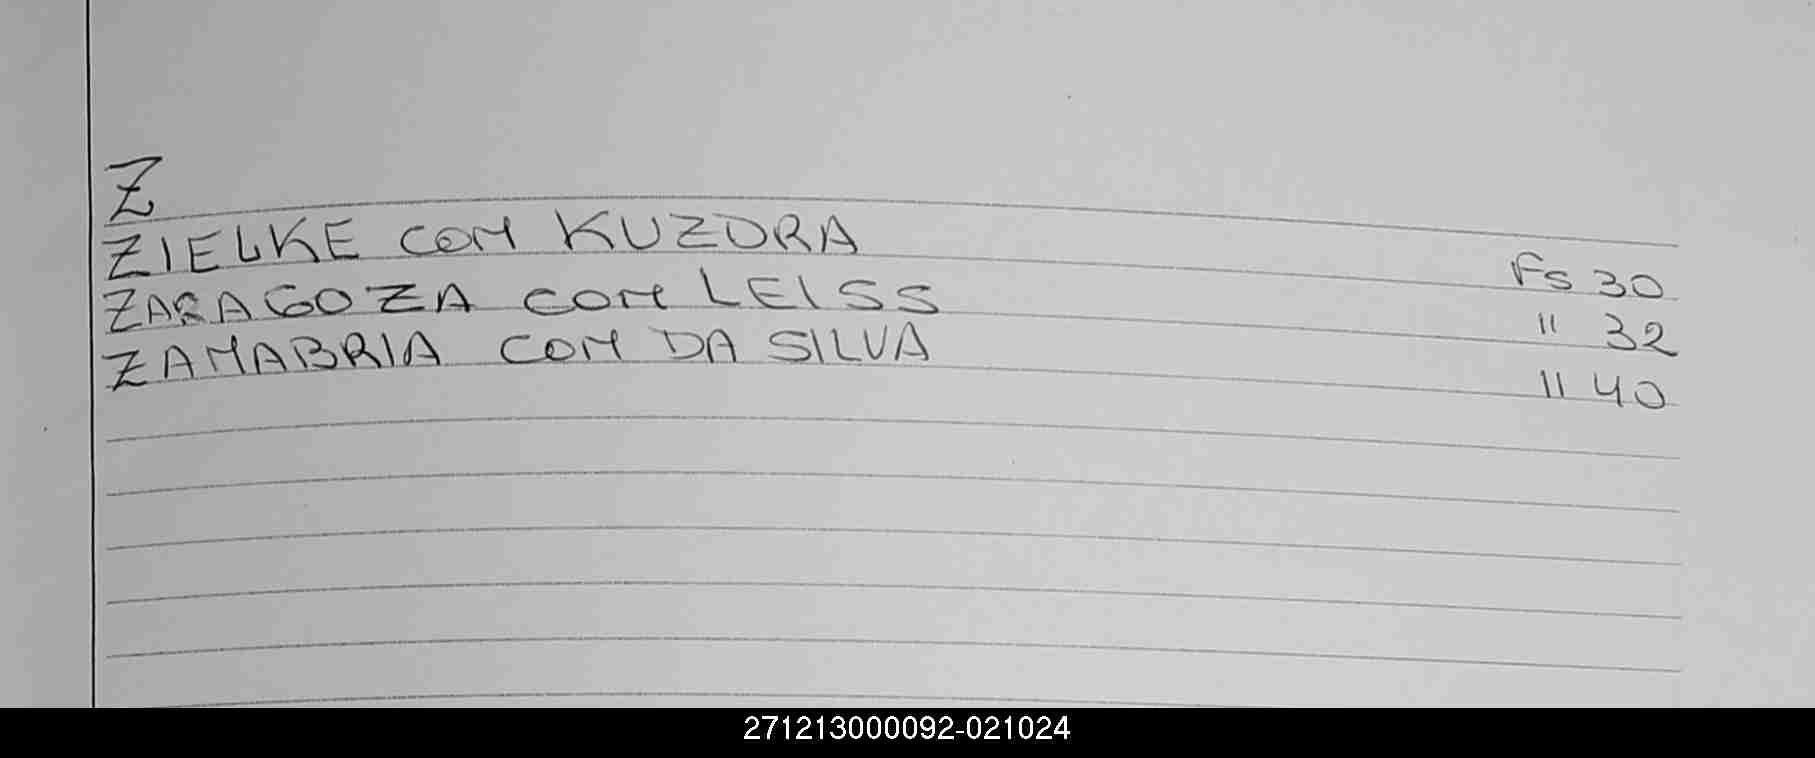 Z
ZIELKE COM KUZDRA Fs 30
ZARAGOZA COM LEISS " 32
ZAMABRIA COM DA SILVA " 40
271213000092-021024